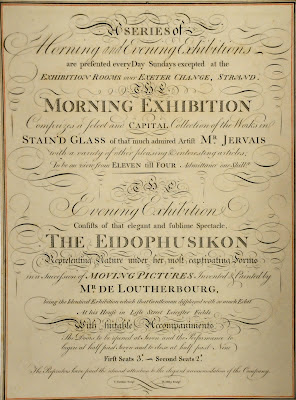 A SERIES of
Morning and Evening Exhibitions
are presented every Day Sundays excepted at the
EXHIBITION ROOMS over EXETER CHANGE, STRAND.
THE
MORNING EXHIBITION
Comprizes a select and CAPITAL Collection of the Works in
STAIN'D GLASS of that much admired Artist MR JERVAIS
with a variety of other pleasing & interesting articles;
To be view'd from ELEVEN till FOUR. Admittance one Shillg.
THE
Evening Exhibition
Consists of that elegant and sublime Spectacle,
THE EIDOPHUSIKON
Representing Nature under her most captivating Forms
in a Succession of MOVING PICTURES. Invented & Painted by
MR DE LOUTHERBOURG,
being the Identical Exhibition which that Gentleman displayed with so much Eclat
At his House in Lisle Street Leicester Fields
With suitable Accompaniments
The Doors to be opened at Seven and the Performance to
begin at half past Seven and to close at half past Nine
First Seats 3s. — Second Seats 2s.